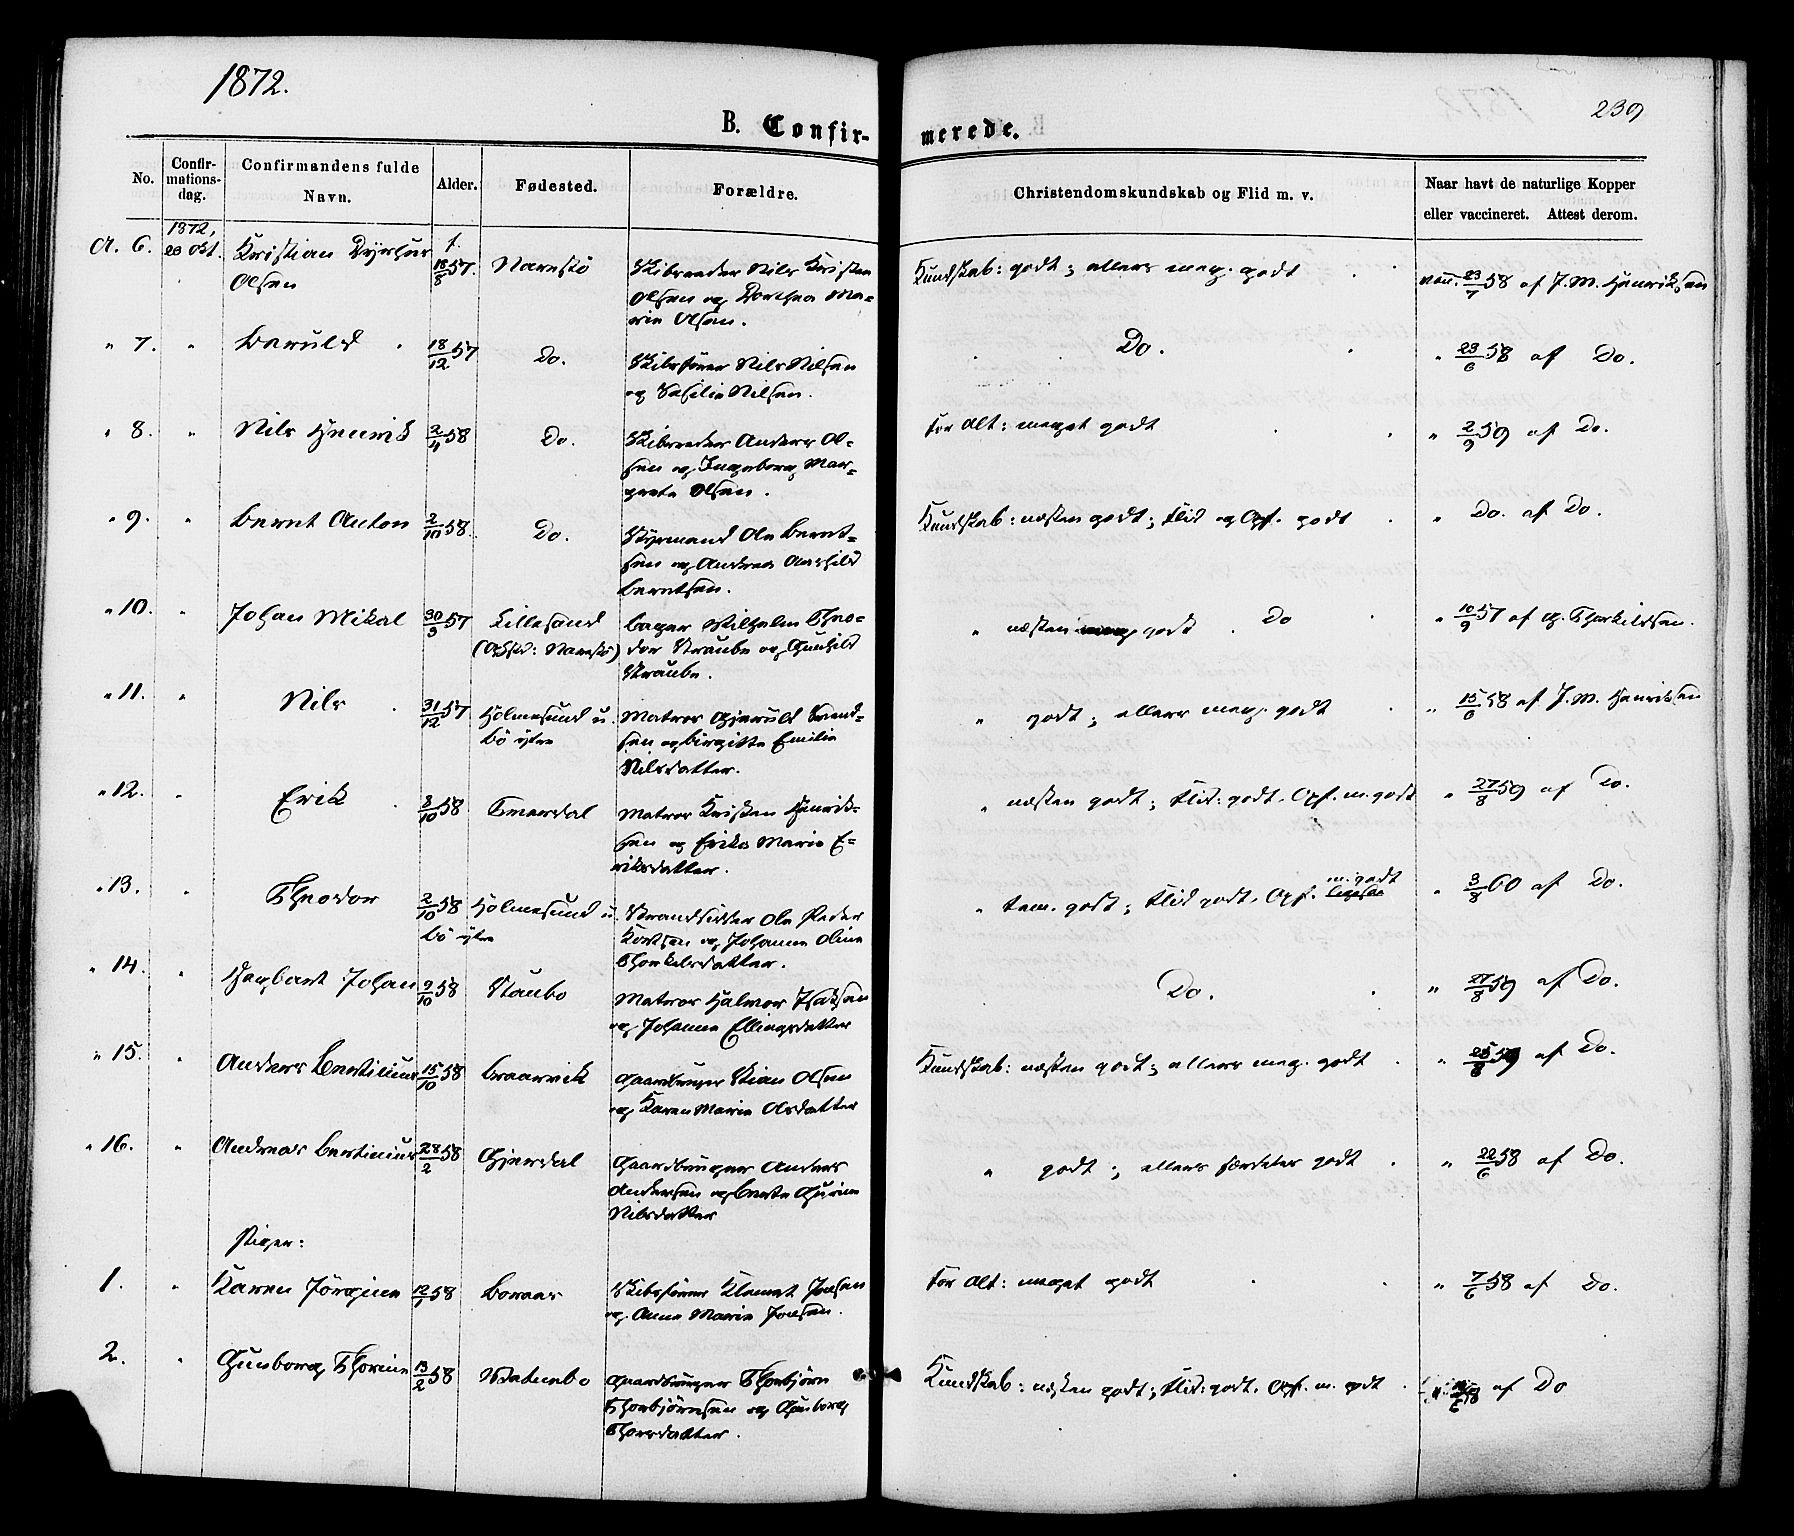 1872.
239
B. Confir-
merede.
No.
Confir-
mations-
dag.
Confirmandens fulde
Navn.
Alder.
Fødested.
Forældre.
Christendomskundskab og Flid m. v.
Naar havt de naturlige Kopper
eller vaccineret. Attest derom.
1872,
6. 20 Okt. Kristian
Olsen
18/8 57. Narestö
Skibsreder Nils Kristen
Olsen og Dorthea Ma-
rie Olsen.
Kundskab: godt; ellers meg. godt
vac. 23/7 58 af J. M. Henriksen
" 7. " Baruld 18/12 57 Do.
Skibsfører Nils Nilsen
og Nilsen.
Do.
" 23/6 58 af Do.
" 8. " Nils Henrik 2/4 58 Do.
Skibsreder Anders Ol-
sen og Ingeborg Mar-
grete Olsen.
For Alt: meget godt
" 2/9 59 af Do.
" 9. " Bernt Anton 2/10 58. Do.
Ole Bernt-
sen og Andrea Aashild
Berntsen.
Kundskab: næsten godt; Flid og Opf. godt
" Do. af Do.
" 10. " Johan Mikal 30/3 57 Lillesand
(Opfd: Narestö)
Bager Wilhelm Theo-
dor Straube og Gunhild
Straube.
" næsten godt Do
" 10/9 57 af Therkildsen.
" 11. " Nils 31/12 57 Holmesund u.
Bö ytre
Matros Gjeruld Svend-
sen og Birgitte Emilie
Nilsdatter.
" godt; ellers meg. godt
" 15/6 58 af J. M. Henriksen
" 12. " Erik 3/10 58 Tverdal
Matros Kristen Henrik-
sen og Erika Marie E-
riksdatter.
" næsten godt; Flid: godt. Opf. m. godt
" 27/8 59 af Do.
" 13. " Theodor 2/10 58 Holmesund u.
Bö ytre
Strandsidder Ole Peder
og Johanne Oline
Thorkelsdatter.
" tem. godt; Flid godt. Opf. m. godt
" 3/8 60 af Do.
" 14. " Hagbart Johan 9/10 58 Staubo
Matros Halvor Isaksen
og Johanne Ellingsdatter
Do.
" 27/8 59 af Do.
" 15. " Anders Bertinius 15/10 58 Braarvik
Gaardbruger Stian Olsen
og Karen Marie Olsdatter
Kundskab: næsten godt; ellers meg. godt
" 59 af Do.
" 16. " Andreas Bertinius 28/2 58 Gjerdal
Gaardbruger Anders
Andersen og Berte Gurine
Nilsdatter
" godt; ellers særdeles godt
" 22/6 58 af Do.
Piger:
1. " Karen Jörgine 58 Boraas
Skibsfører Klemet Joësen
og Anne Marie Joësen.
For Alt: meget godt
" 7/6 58 af Do.
2. " Gunborg Thorine 13/2 58 Watnebo
Gaardbruger Thorbjörn
Thorbjörnsen og Gunborg
Thorsdatter.
Kundskab: næsten godt; Flid: godt. Opf. m. godt
58 af Do